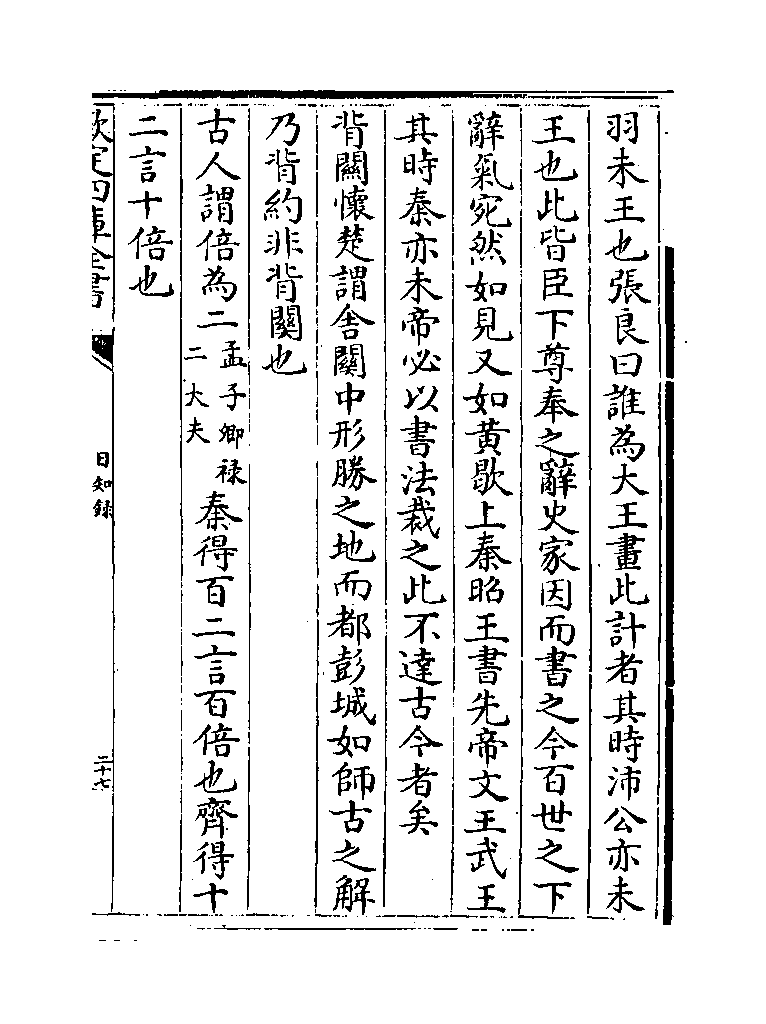 羽未王也張良曰誰為大王畫此計者其時沛公亦未
王也此皆臣下尊奉之辭史家因而書之今百世之下
辭氣宛然如見又如黄歇上秦昭王書先帝文王武王
其時秦亦未帝必以書法裁之此不達古今者矣
背關懷楚謂舍關中形勝之地而都彭城如師古之解
乃背約非背關也
古人謂倍為二孟子卿禄二大夫秦得百二言百倍也齊得十
二言十倍也
欽定四庫全書
日知録
二十七